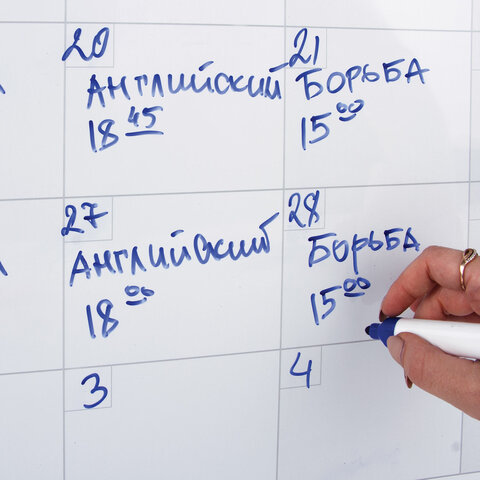 20
Английский
18 45
21
Борьба
15 00
27
Английский
18 00
28
Борьба
15 00
3
4